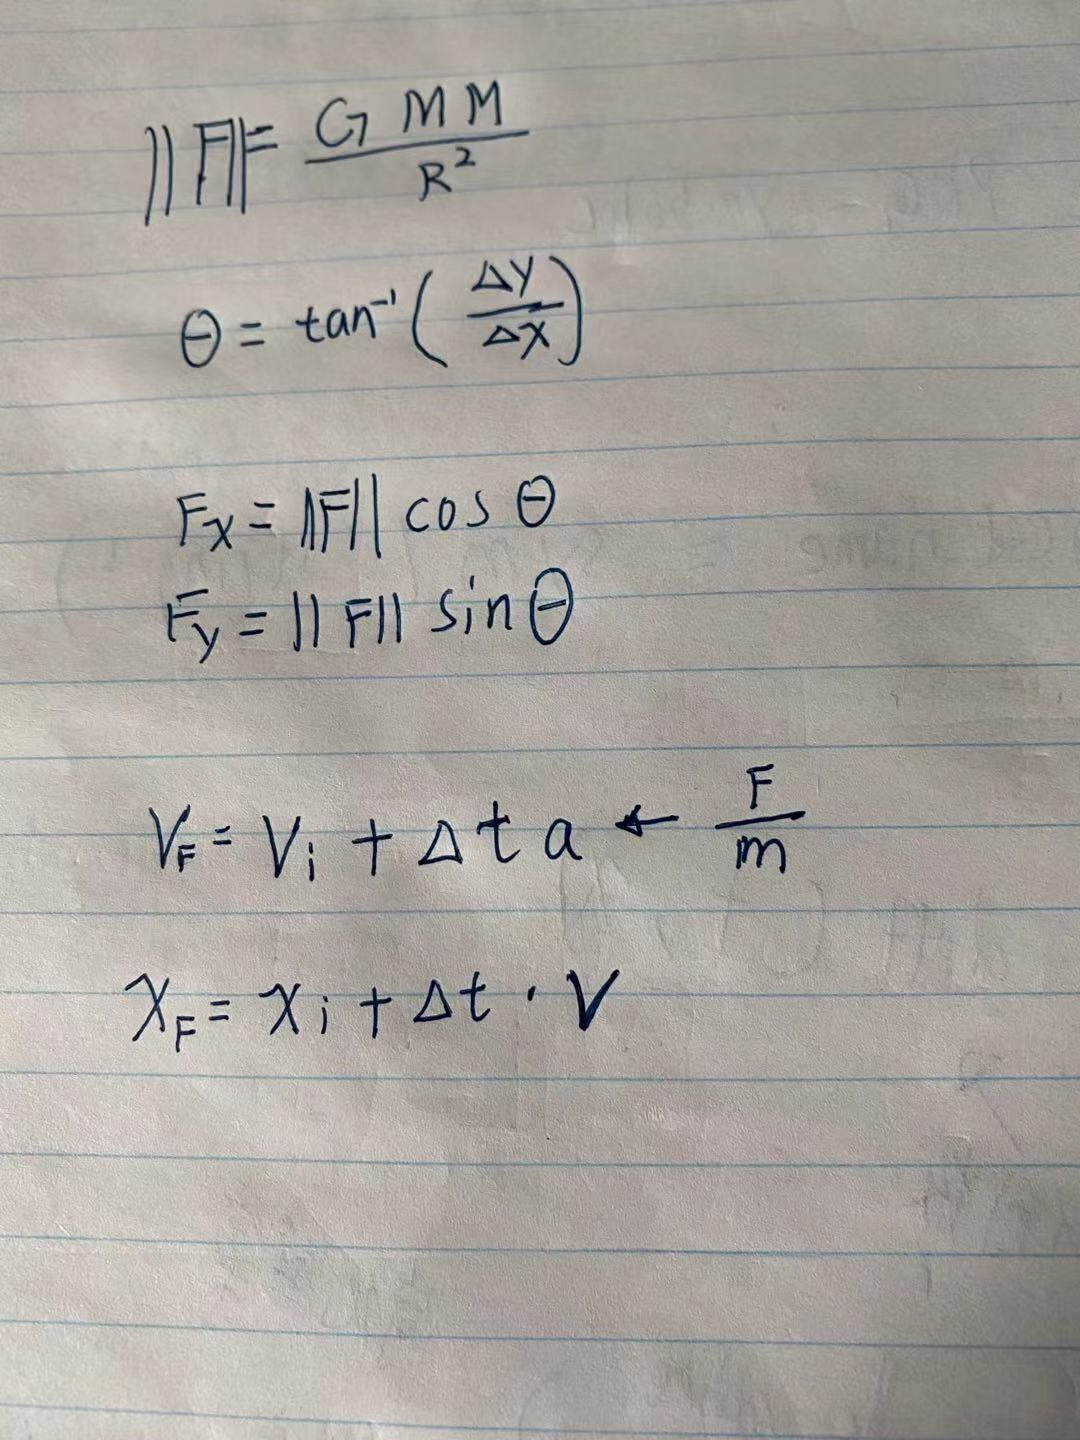 ||F|| = G M M / R²
θ = tan⁻¹ ( ΔY / ΔX )
Fx = ||F|| cos θ
Fy = ||F|| sin θ
VF = Vi + Δt a ← F / m
XF = Xi + Δt · V